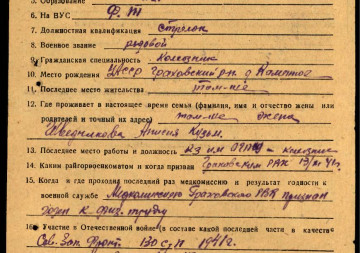 5. Образование
6. На ВУС Ф. Т
7. Должностная квалификация Стрелок
8. Военное звание рядовой
9. Гражданская специальность Колхозник
10. Место рождения Граховский р-н д
11. Последнее место жительства там-же
12. Где проживает в настоящее время семья (фамилия, имя и отчество жены или
родителей и точный их адрес) там-же жена
Анисия Кузьм.
13. Последнее место работы и должность колхозник
14. Каким райгорвоенкоматом и когда призван Граховским РВК 41 г.
15. Когда и где проходил последний раз медкомиссию и результат годности к
военной службе Медкомиссию Граховского РВК признан
годен к физ. труду
16. Участие в Отечественной войне (в составе какой последней части в качестве
Сев. Зап. Фронт. 130 с. п 1941 г.